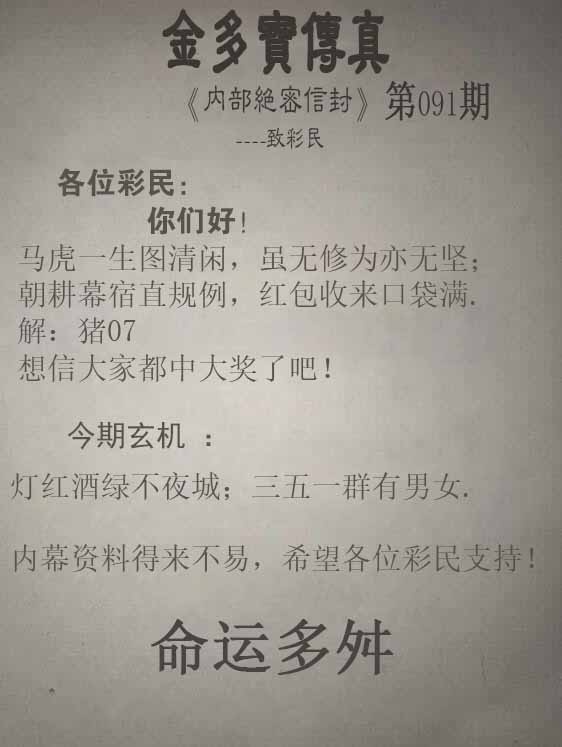 金多寶傳真
《内部絕密信封》第091期
----致彩民
各位彩民:
你们好!
马虎一生图清闲，虽无修为亦无坚;
朝耕幕宿直规例，红包收来口袋满.
解：猪07
想信大家都中大奖了吧！
今期玄机 ：
灯红酒绿不夜城；三五一群有男女.
内幕资料得来不易，希望各位彩民支持！
命运多舛